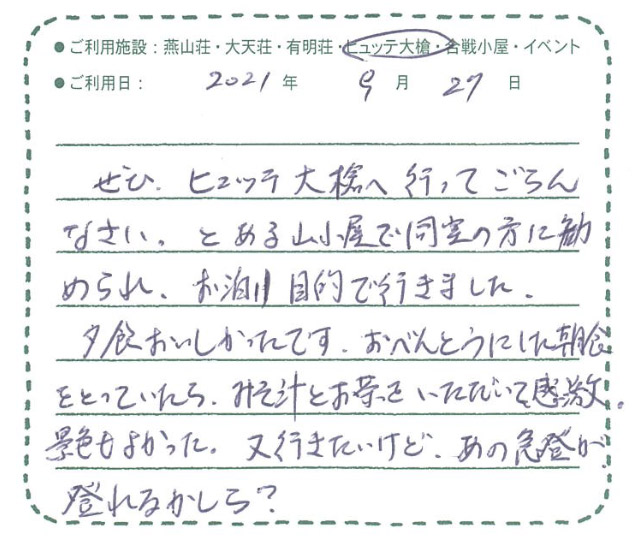 ●ご利用施設：燕山荘・大天荘・有明荘・ヒュッテ大槍・合戦小屋・イベント
●ご利用日： 2021 年 9 月 27 日
ぜひ、ヒュッテ大槍へ行ってごらん
なさい。とある山小屋で同室の方に勧
められ、お泊り目的で行きました。
夕食おいしかったです。おべんとうにした朝食
をとっていたら、みそ汁とお茶をいただいて感激。
景色もよかった。又行きたいけど、あの急登が
登れるかしら？